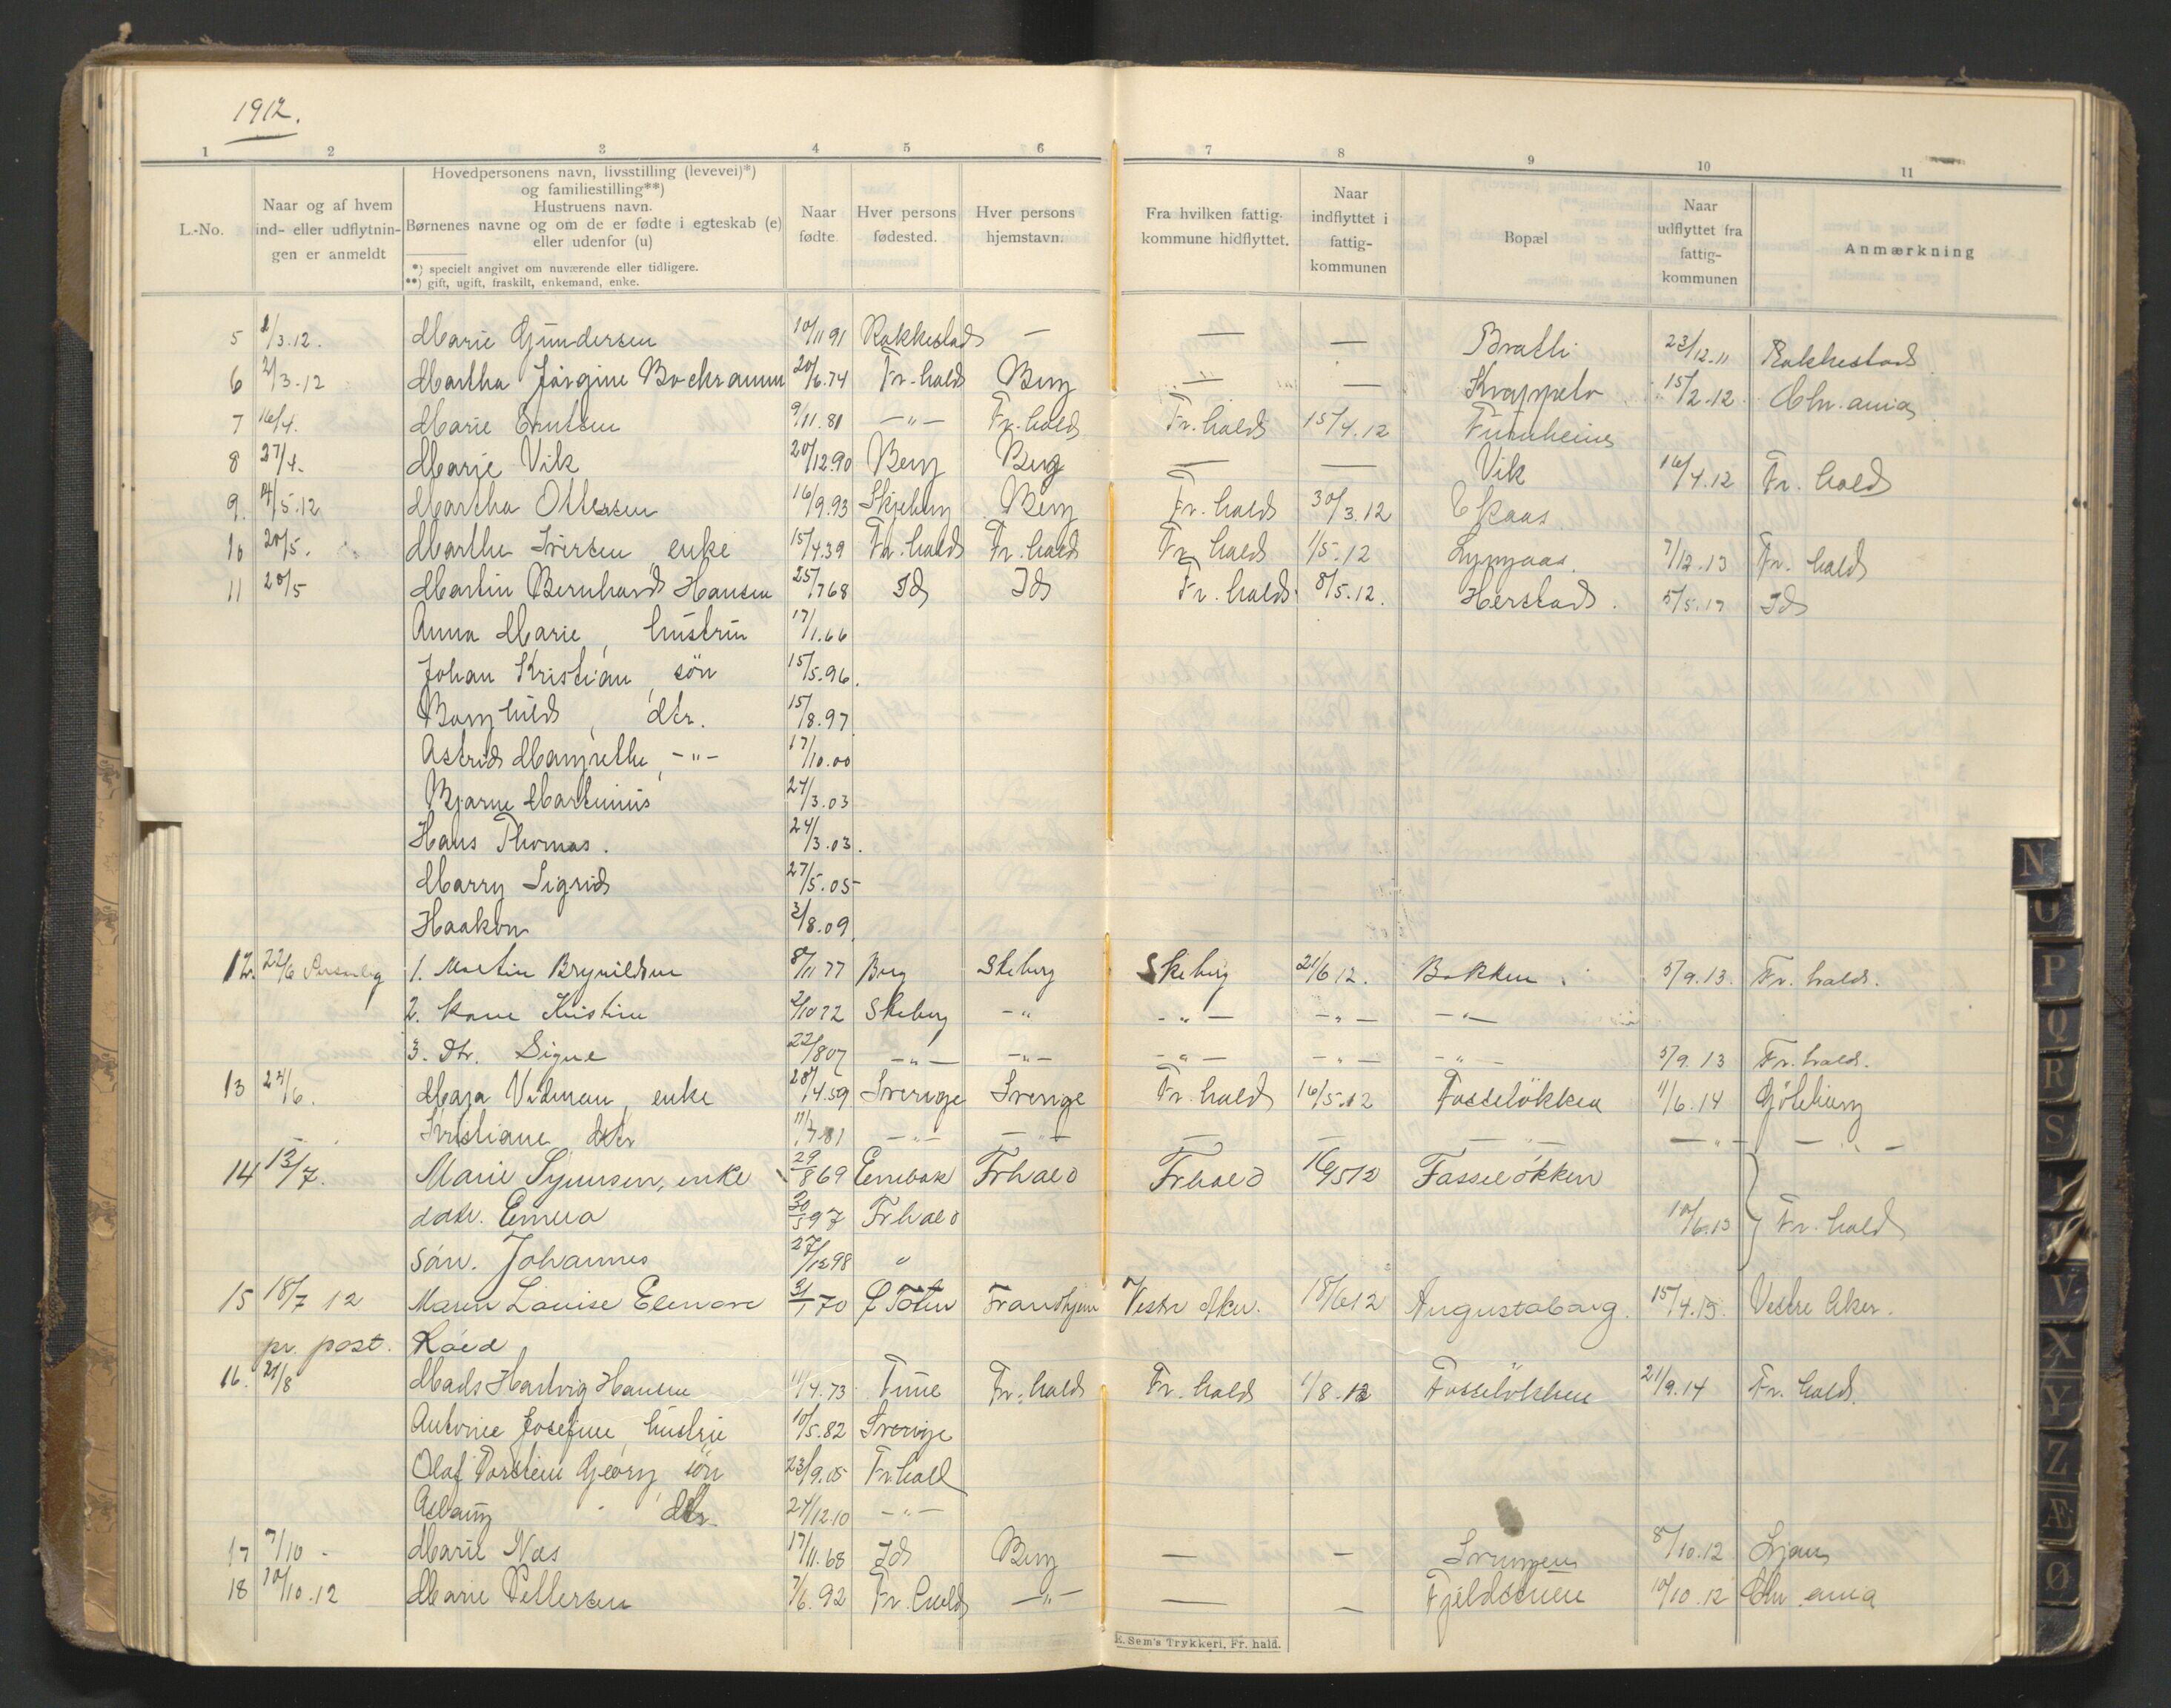 1912.
1 2 3 4 5 6 7 8 9 10 11
L.-No.
Naar og af hvem
ind- eller udflytnin-
gen er anmeldt
Hovedpersonens navn, livsstilling (levevei)*)
og familiestilling**)
Hustruens navn.
Børnenes navne og om de er fødte i egteskab (e)
eller udenfor (u)
*) specielt angivet om nuværende eller tidligere.
**) gift, ugift, fraskilt, enkemand, enke.
Naar
fødte
Hver persons
fødested.
Hver persons
hjemstavn.
Fra hvilken fattig-
kommune hidflyttet.
Naar
indflyttet i
fattig-
kommunen
Bopæl
Naar
udflyttet fra
fattig-
kommunen
Anmærkning
5 /3.12. Marie Gundersen 10/11 91 Rakkestad — — — Bratli 23/12.11 Rakkestad
6 2/3.12 Martha Jørgine 20/6.74 Fr.hald Berg — — Knappelv 15/2.12 Chr.ania
7 16/4. Marie Knutsen 9/11.81 —"— Fr.hald Fr.hald 15/4.12 Furuheim
8 27/4. Marie Vik 20/12.90 Berg Berg — — Vik 16/4.12 Fr.hald
9. 14/5.12 Martha Ottersen 16/9.93 Skjeberg Berg Fr.hald 30/3.12
10 20/5. Marthe Iversen enke 15/4.39 Fr.hald Fr.hald Fr.hald 1/5.12 Lyngaas. 7/12.13 Fr.hald
11 20/5 Martin Bernhard Hansen 25/7 68 Id Id Fr.hald 8/5.12. Herstad. 5/5.17 Id
Anna Marie, hustru 17/1.66
Johan Kristian, søn 15/5.96.
Borghild, dtr. 15/8.97
Astrid Margrethe, —"— 17/10.00
Bjarne Martinius 24/3.03
Hans Thomas. 24/3.03.
Marry Sigrid 27/5.05
Haakon 3/8.09
12. 22/6 Personlig 1. Martin Brynildsen 8/11 77 Berg Skeberg Skeberg 21/6 12. Bakken. 5/9.13. Fr.hald.
2. Kone Kristine 2/10 72 Skeberg —" —"— —"— —"—
3. Dtr. Signe 22/8 07 —"— —"— —"— —"— —"— 5/9.13 Fr.hald.
13 24/6. Maja Vidman, enke 28/4.59 Sverige Sverige Fr.hald 16/5.12 Fosseløkken 1/6.14 Gøteborg
Kristiane dtr 11/7.81 —"— —"— — — —"— —"— —"—
14 13/7. Marie Synnsen, enke 29/8 69 Enebak Frhald Frhald 16/5 12 Fosseløkken
datr. Emma 30/5 97 Frhald 10/6.13 Fr.hald
søn. Johannes 27/12 98 "
15 18/7 12 Maren Louise Elenore 31/1 70 Ø Toten Trondhjem Vestre Aker. 18/6 12 Augustaborg. 15/4.15. Vestre Aker.
pr. post. Röed
16. 21/8 Mads Hartvig Hansen 11/4.73 Tune Fr.hald Fr.hald 1/8.12 Fosseløkken 21/9.14 Fr.hald.
Antonie Josefine, hustru 10/5.82 Sverige
Olaf Torstein Georg, søn 23/9.05 Fr.hald
Aslaug dtr 24/12.10 —"—
17 7/10 - Marie Næs 17/11.68 Id Berg — — 8/10.12 Ljan
18 10/10.12 Marie Pettersen 7/6.92 Fr.hald —"— — — Fjeldstuen 10/10.12 Chr.ania
E. Sem's Trykkeri, Fr. hald.
N
O
P
Q
R
S
T
V
X
Y
Z
Æ
Ø